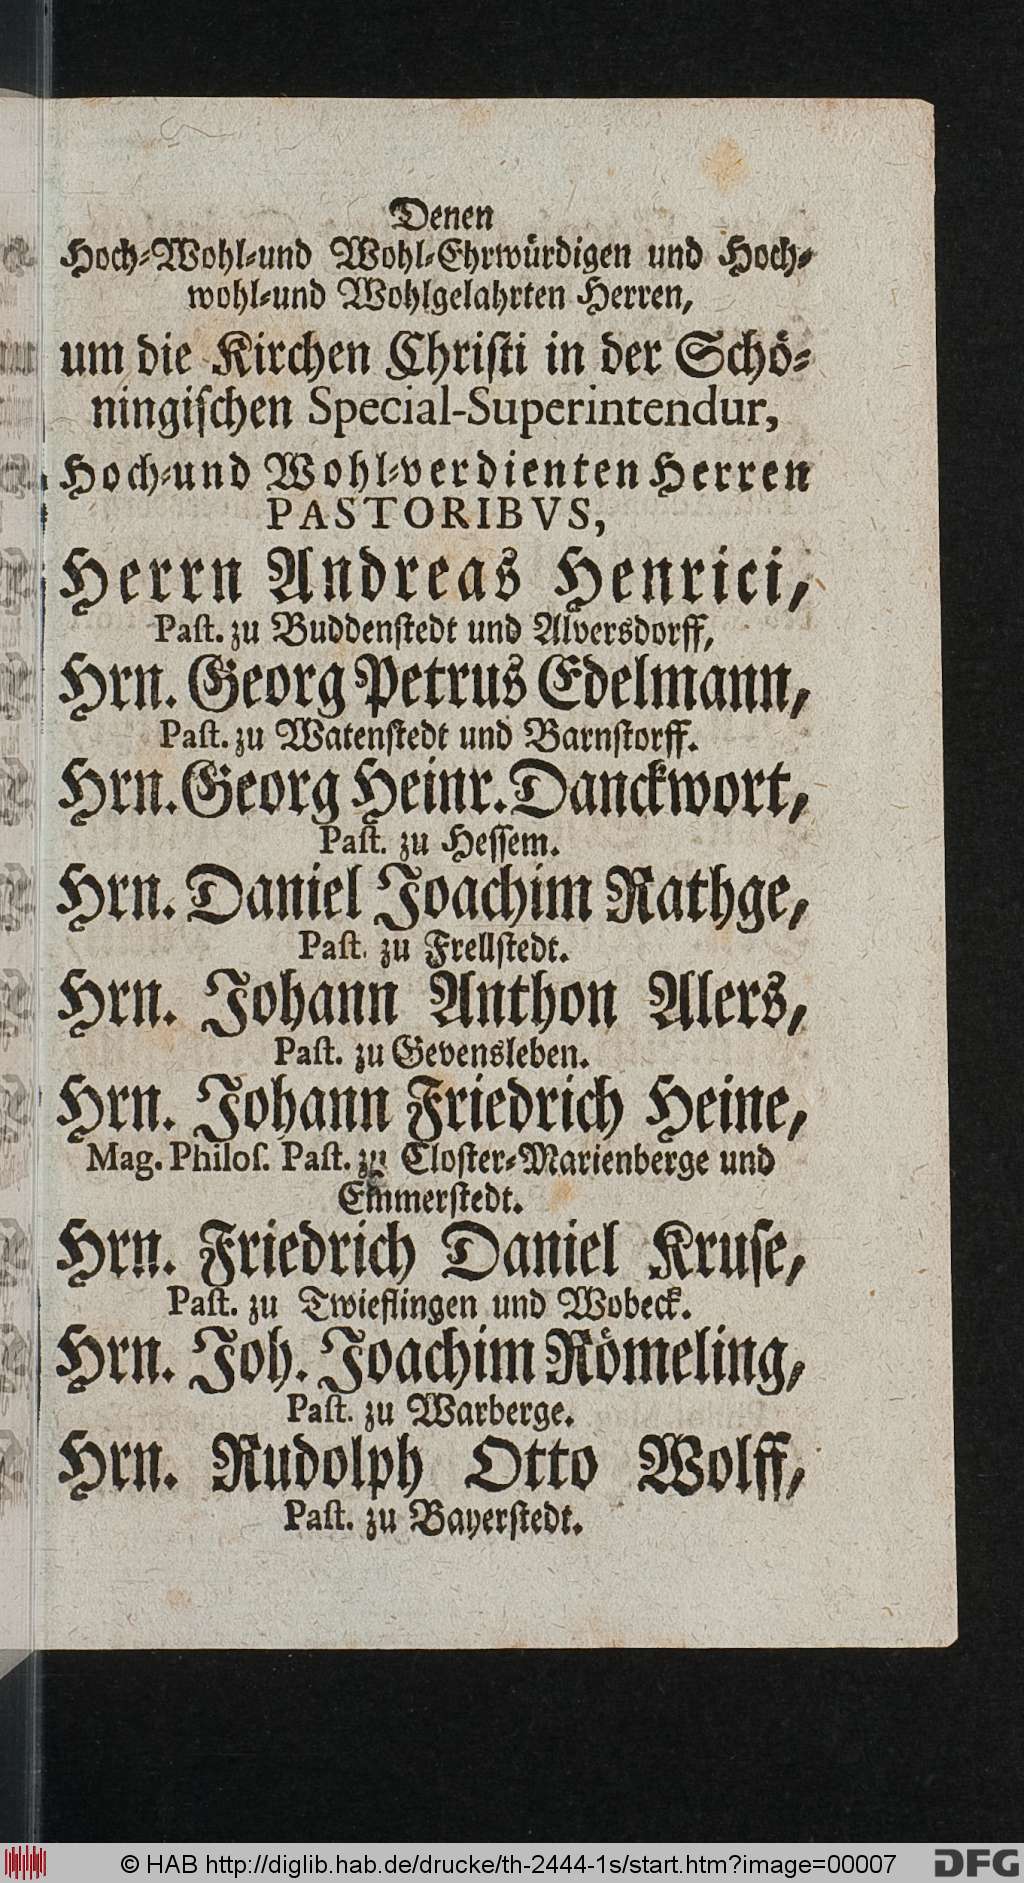 Denen
Hoch-Wohl-und Wohl-Ehrwürdigen und Hoch-
wohl-und Wohlgelahrten Herren,
um die Kirchen Christi in der Schö-
ningischen Special-Superintendur,
Hoch-und Wohl-verdienten Herren
PASTORIBVS,
Herrn Andreas Henrici,
Past. zu Buddenstedt und Alversdorff,
Hrn. Georg Petrus Edelmann,
Past. zu Watenstedt und Barnstorff.
Hrn. Georg Heinr. Danckwort,
Past. zu Hessem.
Hrn. Daniel Joachim Rathge,
Past. zu Frellstedt.
Hrn. Johann Anthon Alers,
Past. zu Gevensleben.
Hrn. Johann Friedrich Heine,
Mag. Philos. Past. zu Closter-Marienberge und
Emmerstedt.
Hrn. Friedrich Daniel Kruse,
Past. zu Twieflingen und Wobeck.
Hrn. Joh. Joachim Römeling,
Past. zu Warberge.
Hrn. Rudolph Otto Wolff,
Past. zu Bayerstedt.
© HAB http://diglib.hab.de/drucke/th-2444-1s/start.htm?image=00007
DFG